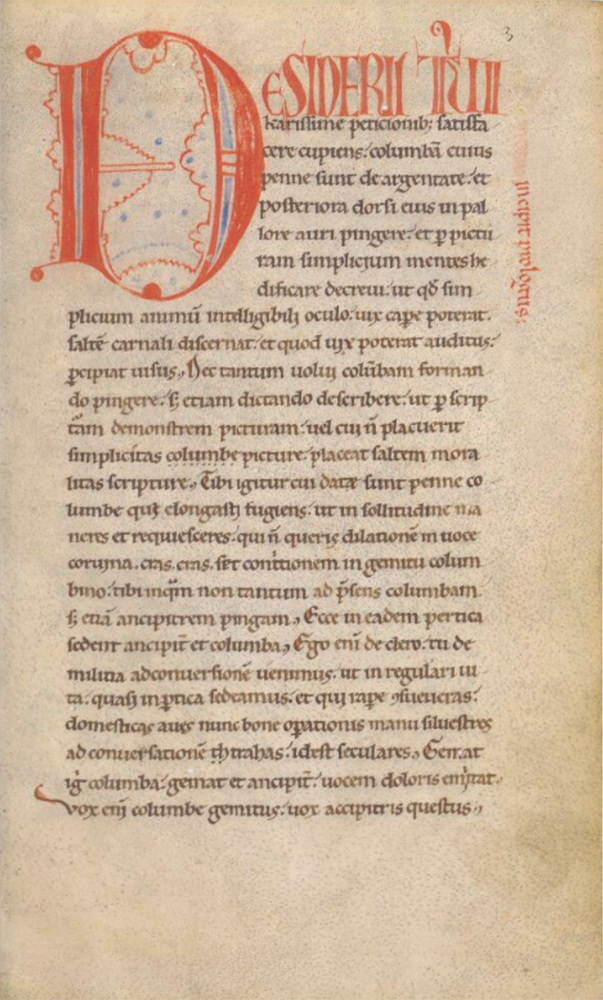 3
DESIDERII TUI
karissime peticionib; satisfa
cere cupiens. columbā cuius
penne sunt de argentate. et
posteriora dorsi eius in pal
lore auri pingere. et p pictu
ram simplicium mentes he
dificare decrevi. ut qđ sim
plicium animus intelligibili oculo. uix cape poterat.
saltē carnali discernat. et quod uix poterat auditus.
pcipiat uisus. Nec tantum uolui colūbam forman
do pingere. ſ; etiam dictando describere. ut p scrip
tam demonstrem picturam. uel cui ñ placuerit
simplicitas columbe picture. placeat saltem mora
litas scripture. Tibi igitur cui datae sunt penne co
lumbe qui elongasti fugiens. ut in sollitudine ma
neres et requiesceres. qui ñ queris dilationē in uoce
coruina. cras. cras. set contrtionem in gemitu colum
bino. tibi inqm non tantum ad p̄sens columbam.
ſ; etiā ancipitrem pingam. Ecce in eadem pertica
sedent ancipit̄ et columba. Ego enī de clero. tu de
militia ad conuersionē uenimus. ut in regulari ui
ta. quasi in ptica sedeamus. et qui rape ɔsueueras.
domesticas aues nunc bone opationis manu siluestres
ad conuersationē trahas. id est seculares. Gemat
igͥ columba. gemat et ancipit̄. uocem doloris emittat.
vox enī columbe gemitus. uox accipitris questus.
incipit prologus.